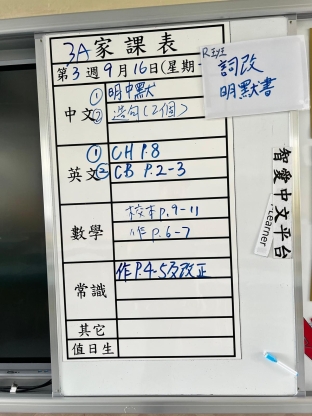 3A家課表
第3週9月16日(星期一
R班
詞改
明默書
中文
①明中默
②造句(2個)
英文
①CH P.8
②CB P.2-3
數學
校本p.9-11
作p.6-7
常識
作P.4-5及改正
其它
值日生
智愛中文平台
Learner